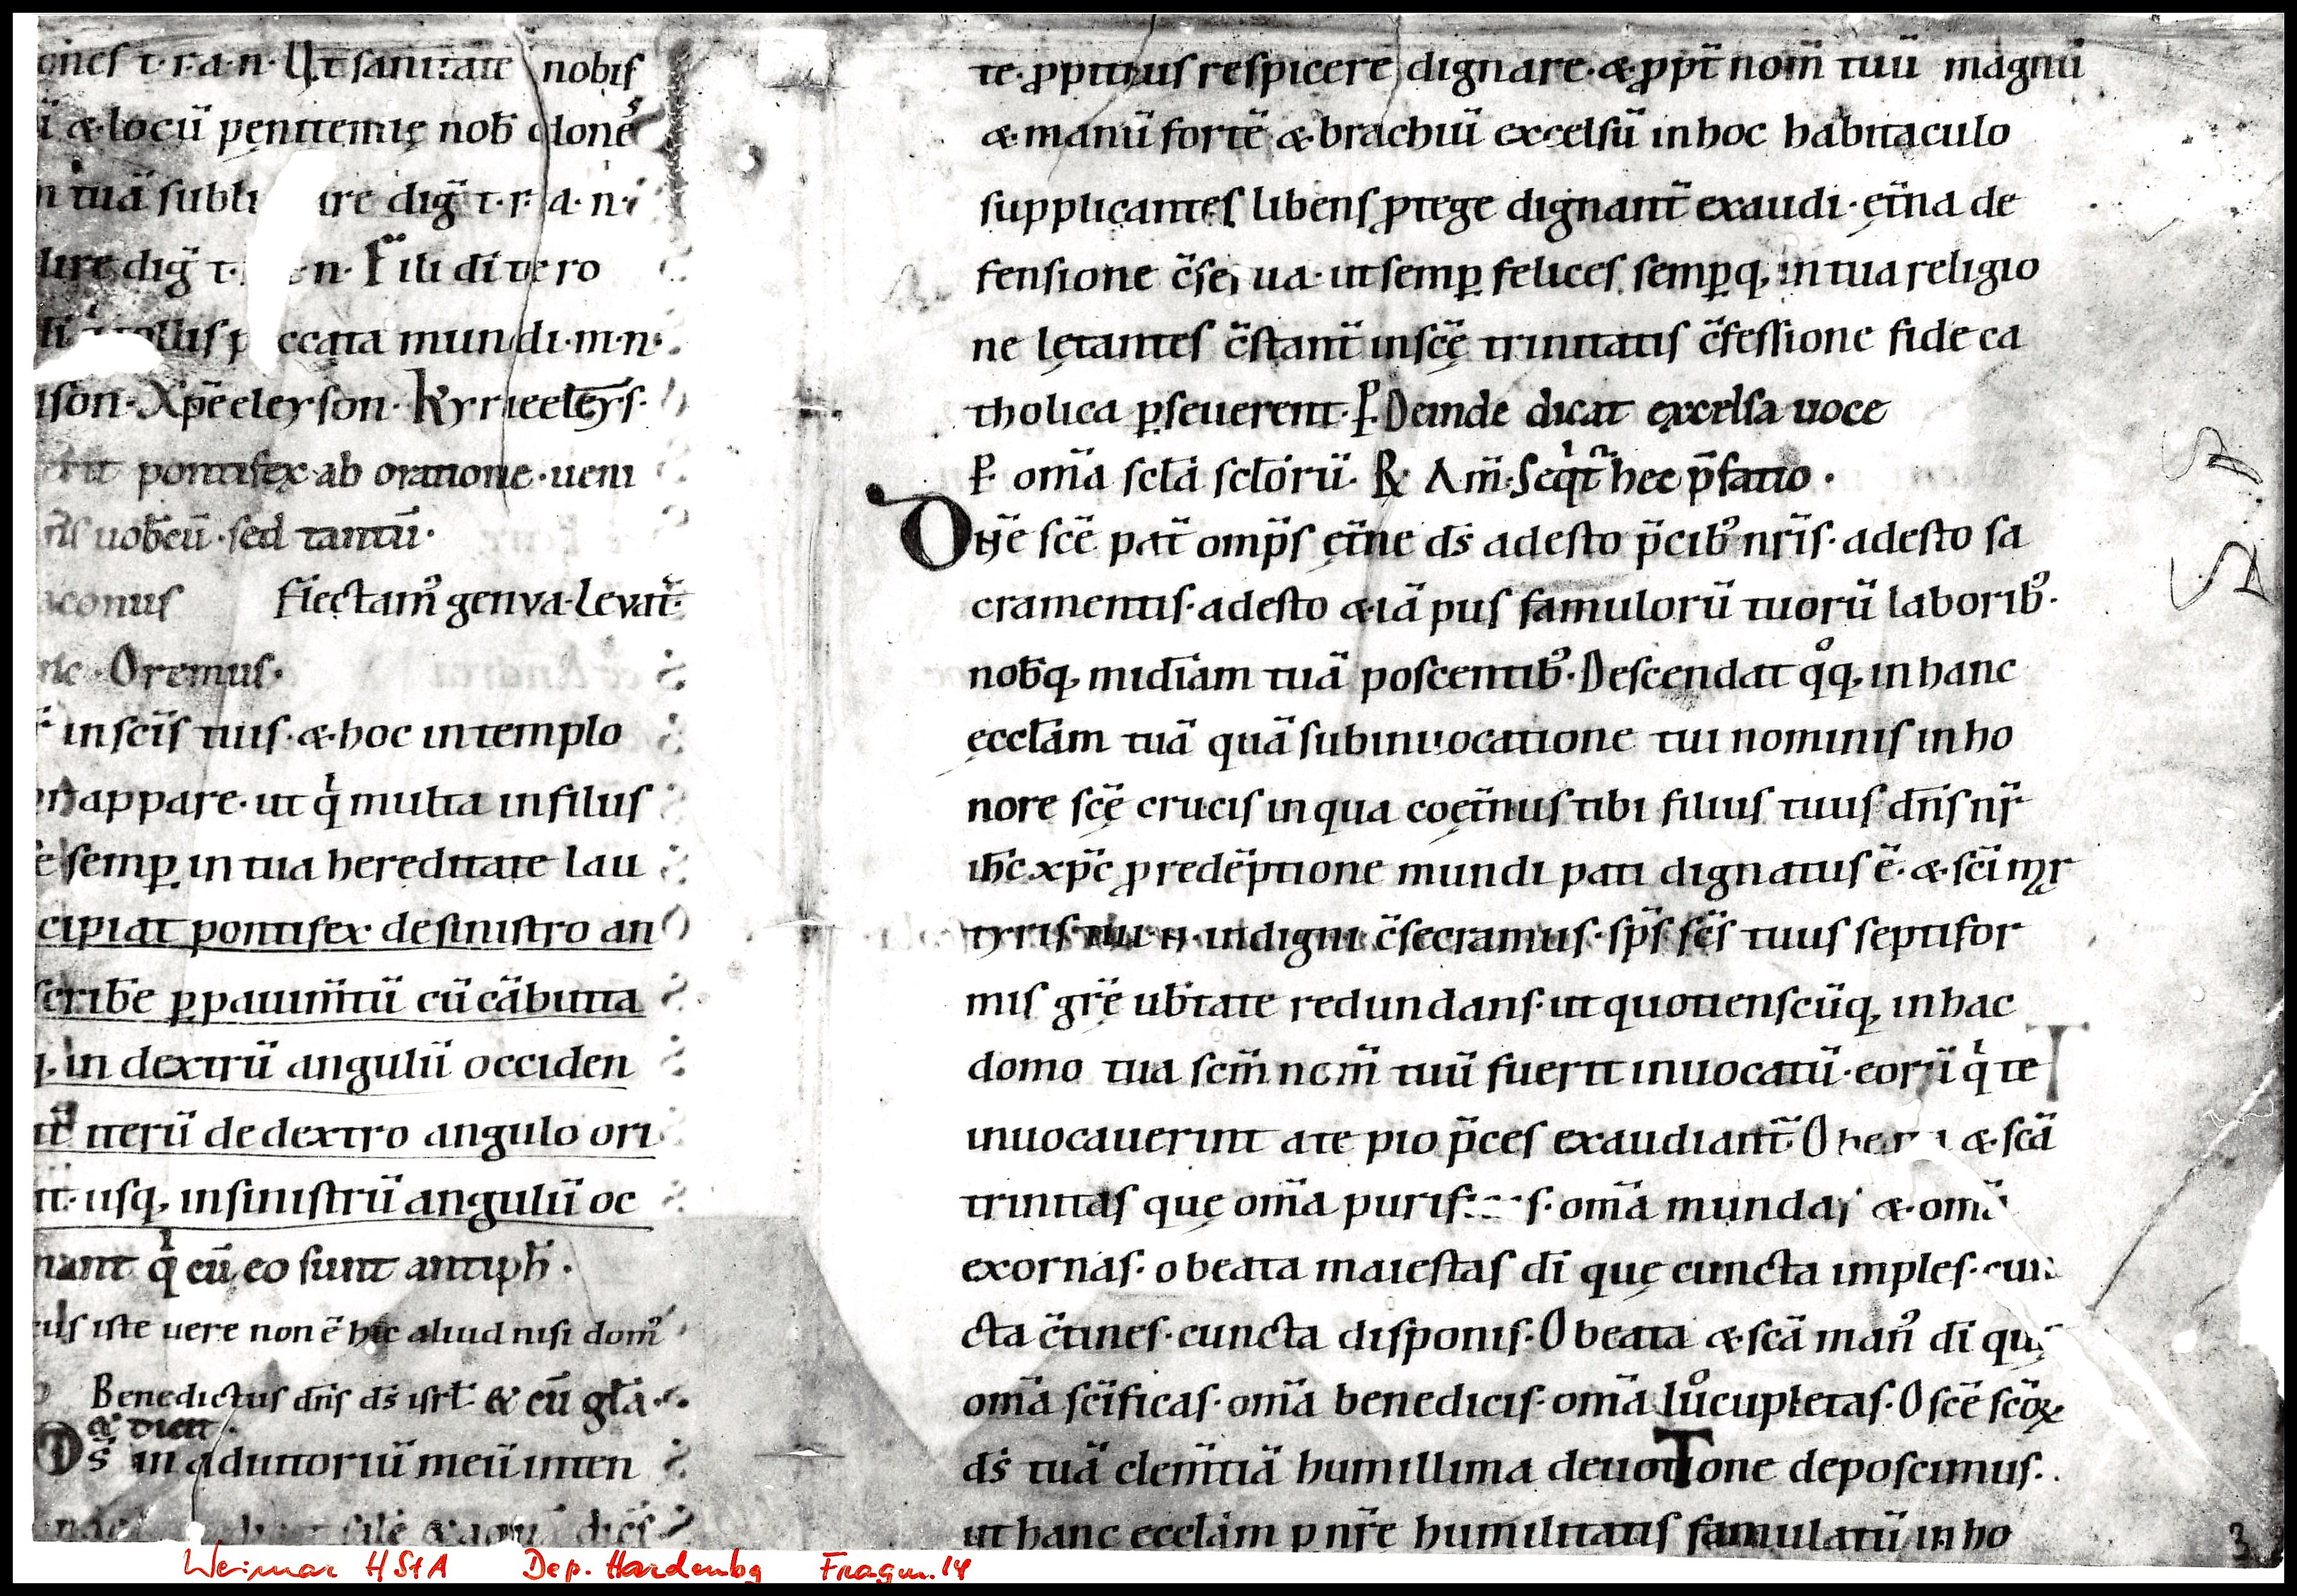 ones t·r·a·n· Ut sanitatē nobis
ū & locū pęnitentię nob̄ dones
tuā subli ire diḡ t·r·a·n·
lire diḡ t· n· Fili dī vero
di qͥ tollis peccata mundi·m·n·
ison· Xp̄eeleyson· Kyrieeleys·
pontifex ab oratione·ueni
uob̄cū·sed tantū·
aconus Flectamꝰ genva·Levat̄·
Oremus·
in scīs tuis·&·hoc in templo
appare·ut qͥ multa in filiis
semꝑ in tua hereditate lau
cipiat pontifex de sinistro an
scrib̄e ꝑ pauim̄tū cū cābutta
in dextrū angulū occiden
iterū de dextro angulo ori
usq, in sinistrū angulū oc
nant qͥ cū eo sunt antiph̄·
iste uere non ē hic aliud nisi domꝰ
Benedictus dn̄s ds̄ isrl̄· & cū gl̄a·
& dicit·
Ds̄ in adiutoriū meū inten
te·ꝓpitius respicere dignare·&·ꝓpt̄ nom̄ tuū magnū
&·manū fortē &·brachiū excelsū in hoc habitaculo
supplicantes libens ꝓtege dignant̄ exaudi·ęt̄na de
fensione c̄serua·ut semꝑ felices semꝑq, in tua religio
ne lętantes c̄stant̄ in scę̄ trinitatis c̄fessione fide ca
tholica ꝑseuerent·P̱· Deinde dicat excelsa uoce
P̱· om̄a scl̄a scl̄orū· R̷ Am̄· Seqͥt̄ hec p̄fatio·
Dn̄e scē pat̄ omp̄s ęt̄ne ds̄ adesto p̄cibꝰ nr̄is·adesto sa
cramentis·adesto &·iā pus famulorū tuorū laboribꝰ·
nob̄q, mīdiam tuā poscentibꝰ·Descendat qͦq, in hanc
ęccl̄am tuā quā sub inuocatione tui nominis in ho
nore scę̄ crucis in qua coęt̄nus tibi filius tuus dn̄s nr̄
ih̄c xp̄c ꝓ redēptione mundi pati dignatus ē·&·scī mr̄
tyris tui n̄· indigni c̄secramus·sp̄s scs̄ tuus septifor
mis gr̄ę ub̄tate redundans·ut quotienscūq, in hac
domo tua scm̄ nom̄ tuū fuerit inuocatū·eorū qͥ te
inuocauerint a te pio p̄ces exaudiant̄·O &·scā
trinitas quę om̄a purif s·om̄a mundas &·om̄a
exornas·o beata maiestas dī quę cuncta imples·cun
cta c̄tines·cuncta disponis·O beata &·scā manꝰ dī quę
om̄a scīficas·om̄a benedicis·om̄a luͦcupletas·O scē scōꝝ
ds̄ tuā clem̄tiā humillima deuotTone deposcimus·
ut hanc eccl̄am ꝑ nr̄e humilitatis famulatū in ho
3
Weimar HStA Dep. Hardenbg Fragm. 14